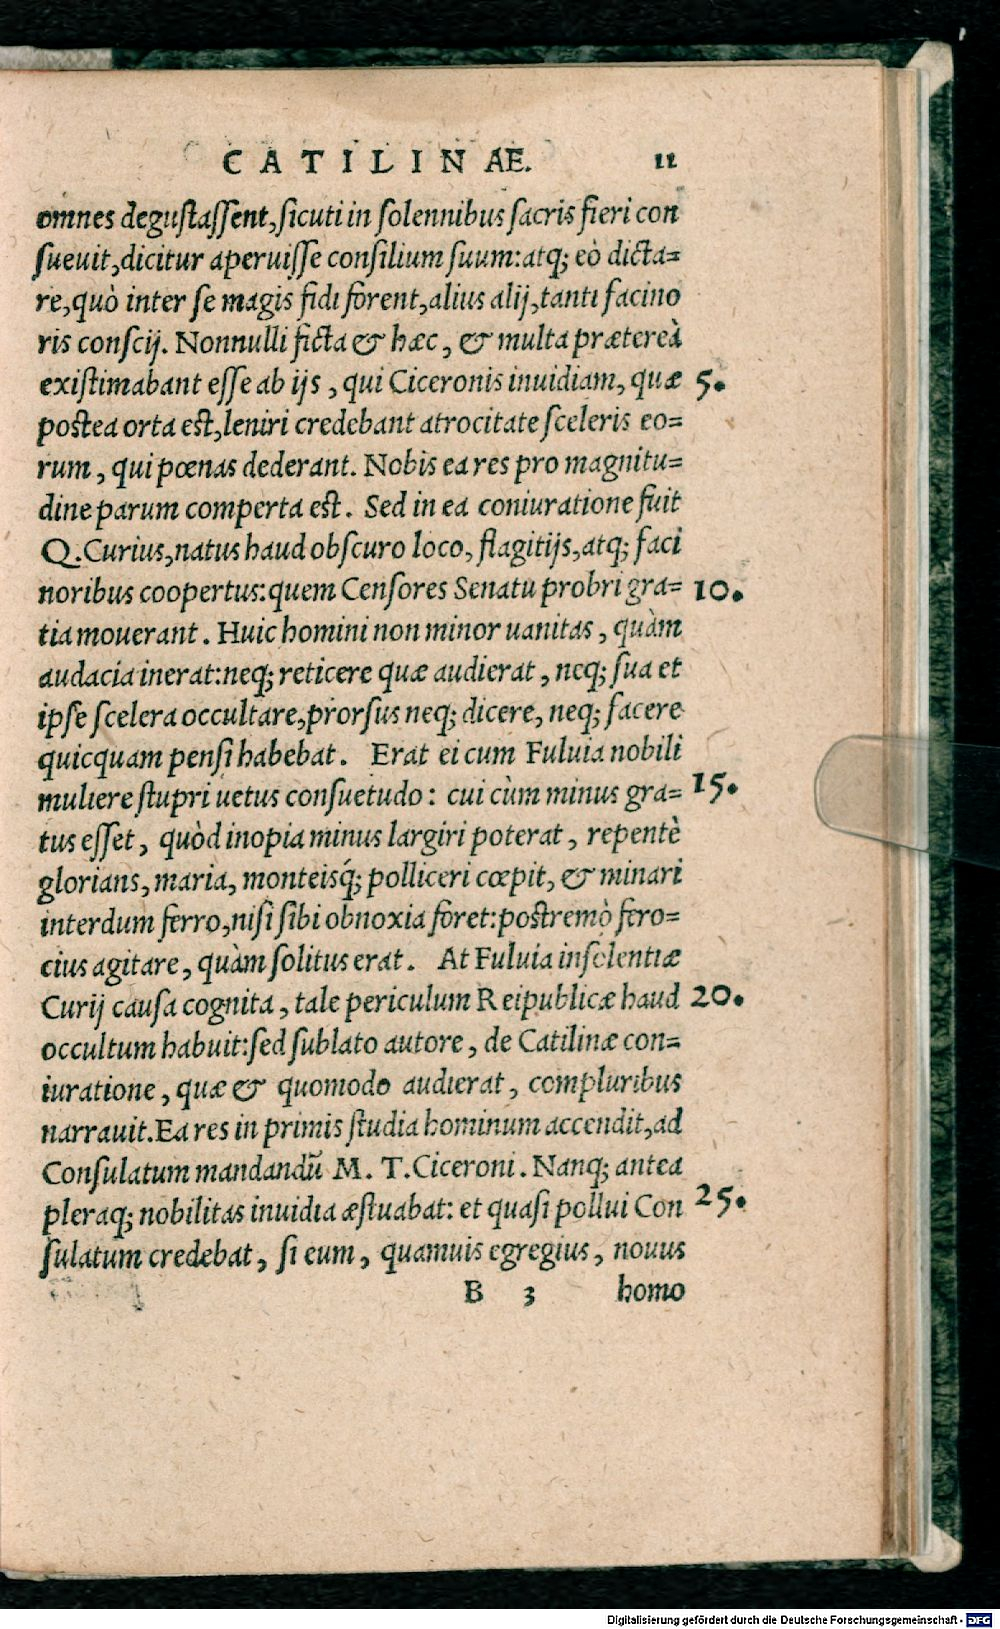 CATILINAE. 11
omnes degustassent, sicuti in solennibus sacris fieri con
sueuit, dicitur aperuisse consilium suum: atq; eò dicta=
re, quò inter se magis fidi forent, alius alij, tanti facino
ris conscij. Nonnulli ficta & hæc, & multa prætereà
existimabant esse ab ijs, qui Ciceronis inuidiam, quæ 5.
postea orta est, leniri credebant atrocitate sceleris eo=
rum, qui pœnas dederant. Nobis ea res pro magnitu=
dine parum comperta est. Sed in ea coniuratione fuit
Q. Curius, natus haud obscuro loco, flagitijs, atq; faci
noribus coopertus: quem Censores Senatu probri gra= 10.
tia mouerant. Huic homini non minor uanitas, quàm
audacia inerat: neq; reticere quæ audierat, neq; sua et
ipse scelera occultare, prorsus neq; dicere, neq; facere
quicquam pensi habebat. Erat ei cum Fuluia nobili
muliere stupri uetus consuetudo: cui cùm minus gra= 15.
tus esset, quòd inopia minus largiri poterat, repentè
glorians, maria, monteisq́; polliceri cœpit, & minari
interdum ferro, nisi sibi obnoxia foret: postremò fero=
cius agitare, quàm solitus erat. At Fuluia insolentiæ
Curij causa cognita, tale periculum Reipublicæ haud 20.
occultum habuit: sed sublato autore, de Catilinæ con=
iuratione, quæ & quomodo audierat, compluribus
narrauit. Ea res in primis studia hominum accendit, ad
Consulatum mandandũ M. T. Ciceroni. Nanq; antea
pleraq; nobilitas inuidia æstuabat: et quasi pollui Con 25.
sulatum credebat, si eum, quamuis egregius, nouus
B 3 homo
Digitalisierung gefördert durch die Deutsche Forschungsgemeinschaft - DFG